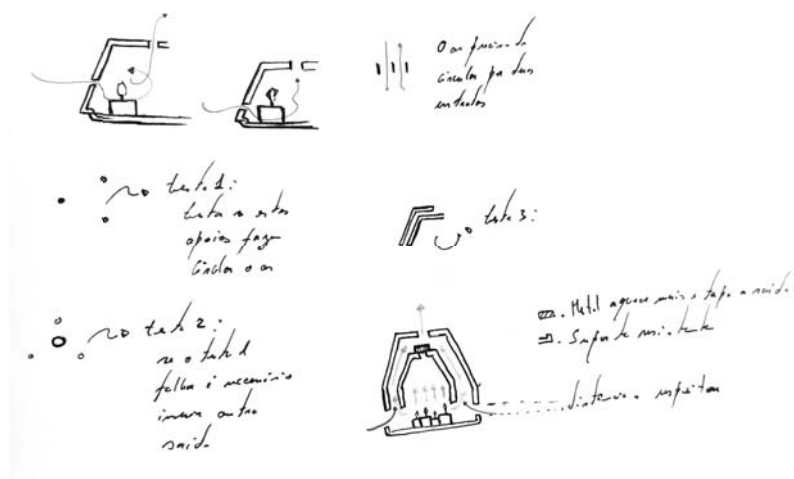 O ar precisa de
circular por duas
entradas
teste 1:
testar se estes
apoios fazem
circular o ar
teste 2:
se o teste 1
falha é necessário
outra
saída
teste 3:
. Metal aquece mais e tapa a saída
. Suporte resistente
distância a respeitar